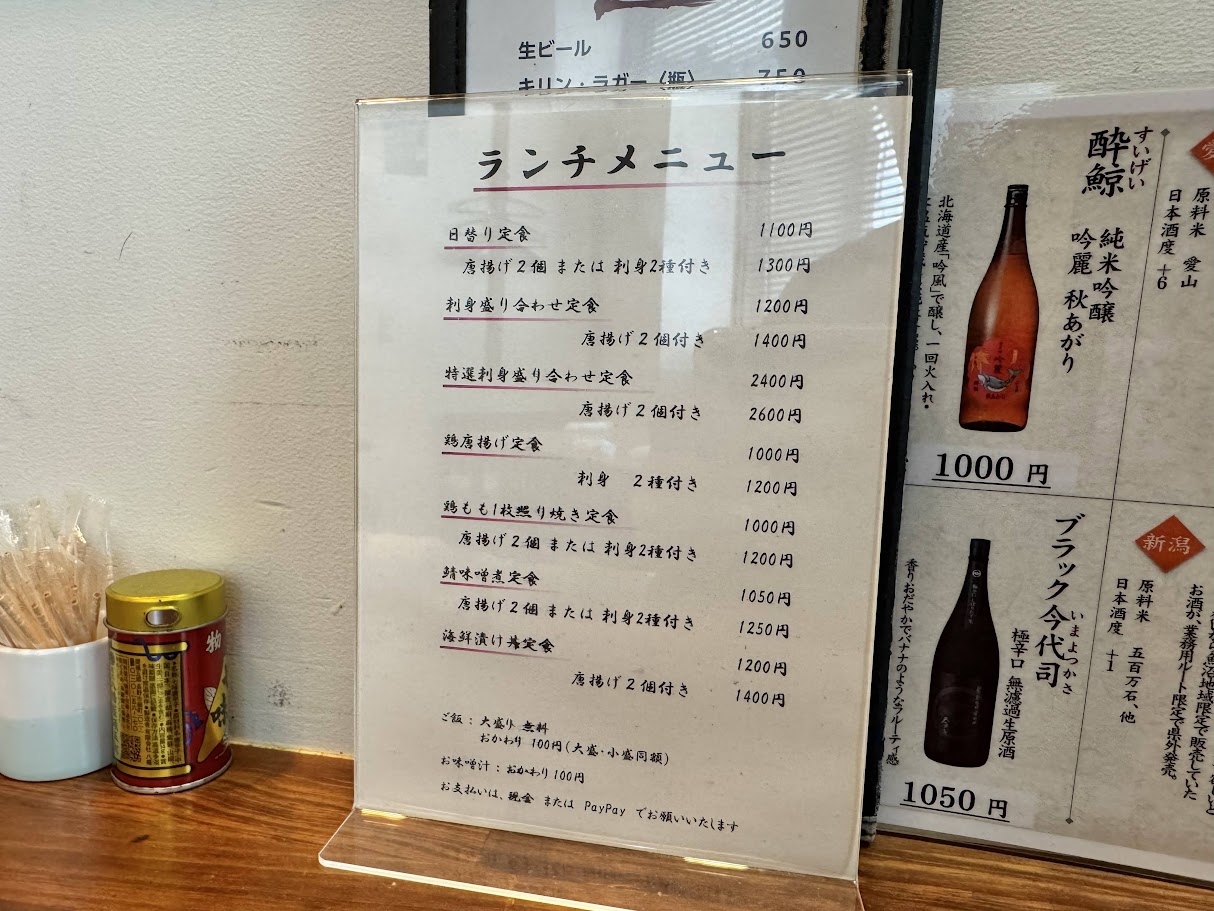 生ビール 650
キリン・ラガー〈瓶〉 750
ランチメニュー
日替り定食 1100円
唐揚げ2個 または 刺身2種付き 1300円
刺身盛り合わせ定食 1200円
唐揚げ2個付き 1400円
特選刺身盛り合わせ定食 2400円
唐揚げ2個付き 2600円
鶏唐揚げ定食 1000円
刺身 2種付き 1200円
鶏もも1枚照り焼き定食 1000円
唐揚げ2個 または 刺身2種付き 1200円
鯖味噌煮定食 1050円
唐揚げ2個 または 刺身2種付き 1250円
海鮮漬け丼定食 1200円
唐揚げ2個付き 1400円
ご飯：大盛り 無料
おかわり 100円(大盛・小盛同額)
お味噌汁：おかわり100円
お支払いは、現金 または PayPay でお願いいたします
すいげい
酔鯨
純米吟醸
吟麗 秋あがり
北海道産「吟風」で醸し、一回火入れ。
1000 円
原料米 愛山
日本酒度 +6
ブラック今代司
いまよつかさ
極辛口 無濾過生原酒
香りおだやかでバナナのようなフルーティ感
1050 円
新潟
原料米 五百万石、他
日本酒度 +1
お酒が、業務用ルート限定で県外発売。
魚沼地域限定で販売していた
物